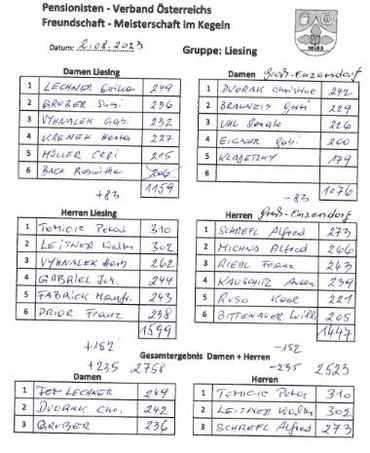 Pensionisten - Verband Österreichs
Freundschaft - Meisterschaft im Kegeln
Datum: 2.08.2023 Gruppe: Liesing
Damen Liesing
1 LECHNER Erika 249
2 GRUBER Susi 236
3 VYHNALEK Gabi 232
4 KRENEK Herta 227
5 MÜLLER 215
6 BACO Roswitha 206
+83 1159
Damen Groß-Enzersdorf
1 DVORAK Christine 242
2 Gusi 229
3 UHL Renate 226
4 EIGNER Gabi 200
5 KLABETZKY 179
6
-83 1076
Herren Liesing
1 TOMICIC Petar 310
2 LEITNER Walter 302
3 VYHNALEK Herb. 262
4 GABRIEL Joh. 244
5 FABRICK Manfr. 243
6 DRIOR Franz 238
1599
+152
Herren Groß-Enzersdorf
1 SCHREFL Alfred 273
2 MICHNA Alfred 266
3 RIEDL Franz 243
4 KAUSCHITZ Anton 239
5 RUSO Karl 221
6 BITTENAUER Willi 205
1447
-152
Gesamtergebnis Damen + Herren
+235 2758 -235 2523
Damen
1 LECHNER 249
2 DVORAK Chr. 242
3 GRUBER 236
Herren
1 TOMICIC Petar 310
2 LEITNER Walter 302
3 SCHREFL Alfred 273